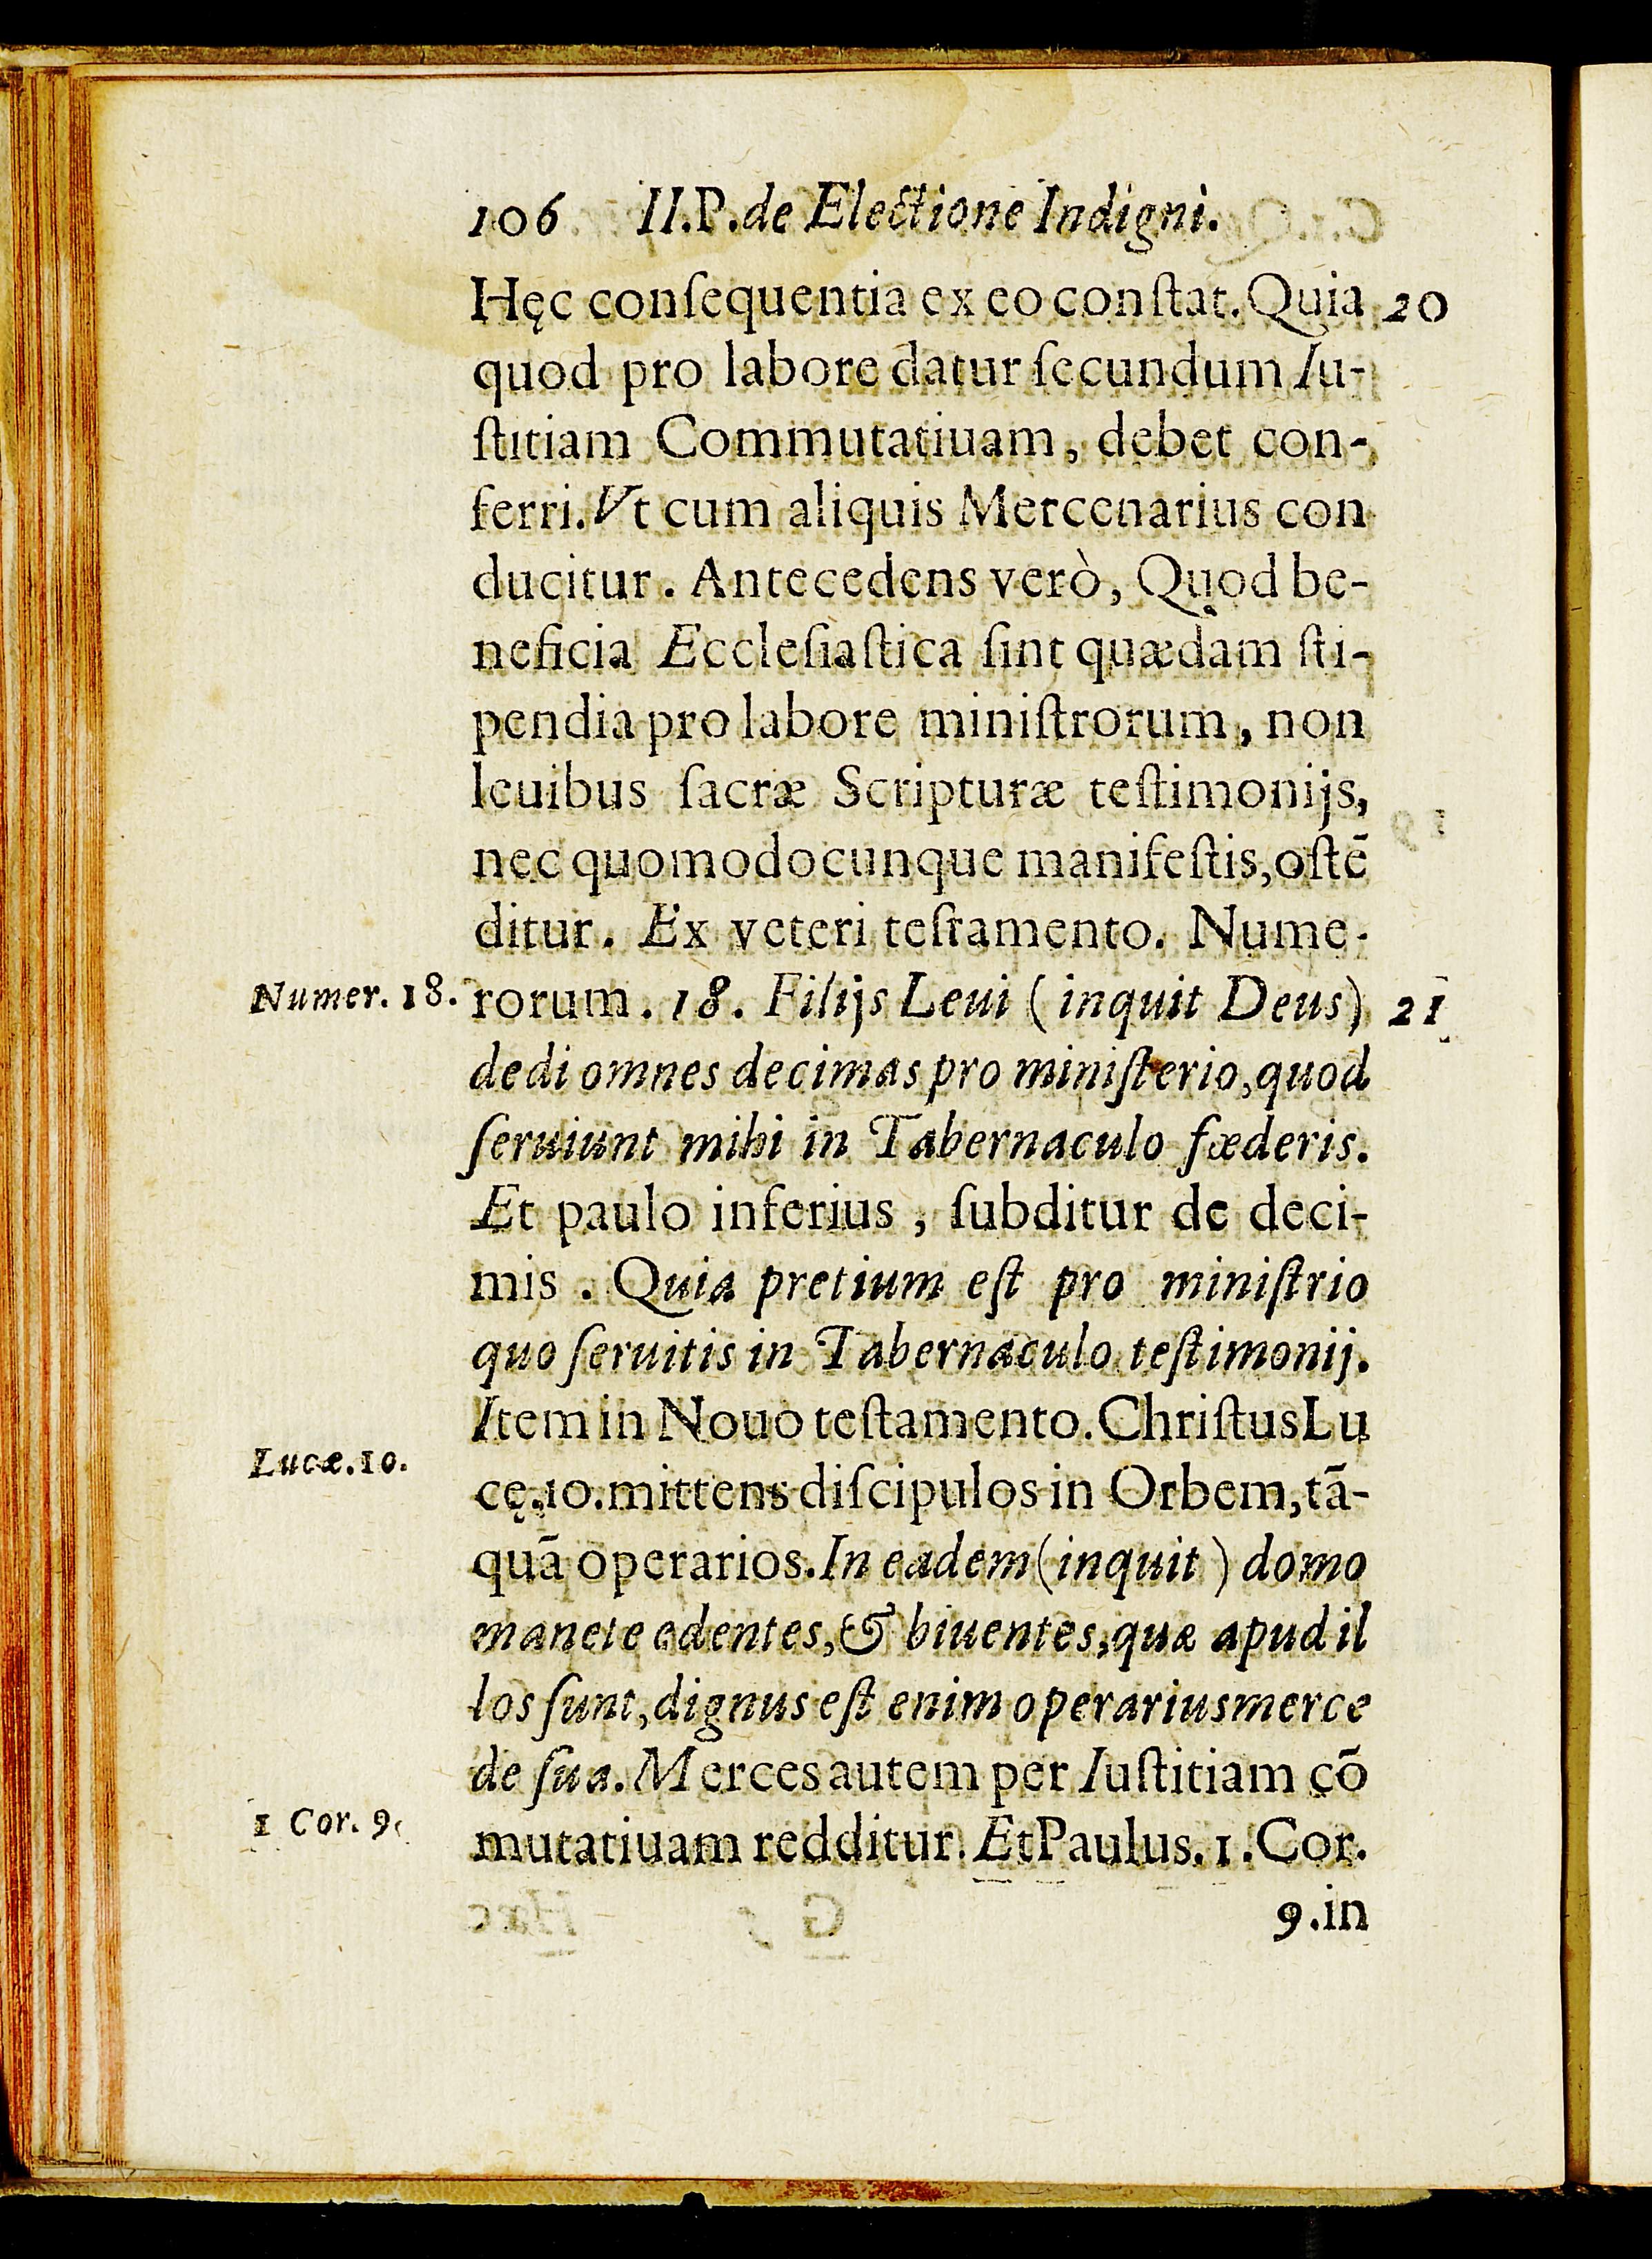 106 II.P.de Electione Indigni.
Hęc conſequentia ex eo conſtat. Quia 20
quod pro labore datur ſecundum Iu-
ſtitiam Commutatiuam, debet con-
ferri. Vt cum aliquis Mercenarius con
ducitur. Antecedens verò, Quod be-
neficia Eccleſiaſtica ſint quædam ſti-
pendia pro labore miniſtrorum, non
leuibus ſacræ Scripturæ teſtimonijs,
nec quomodocunque manifeſtis, oſtē
ditur. Ex veteri teſtamento. Nume-
Numer. 18. rorum. 18. Filijs Leui (inquit Deus) 21
dedi omnes decimas pro miniſterio, quod
ſeruiunt mihi in Tabernaculo fæderis.
Et paulo inferius, ſubditur de deci-
mis. Quia pretium eſt pro miniſtrio
quo ſeruitis in Tabernaculo teſtimonij.
Item in Nouo teſtamento. Chriſtus Lu
Lucæ. 10.
cę. 10. mittens diſcipulos in Orbem, tā-
quā operarios. In eadem (inquit) domo
manete edentes, & biuentes, quæ apud il
los ſunt, dignus eſt enim operarius merce
de ſua. Merces autem per Iuſtitiam cō
1 Cor. 9. mutatiuam redditur. Et Paulus. 1. Cor.
9. in